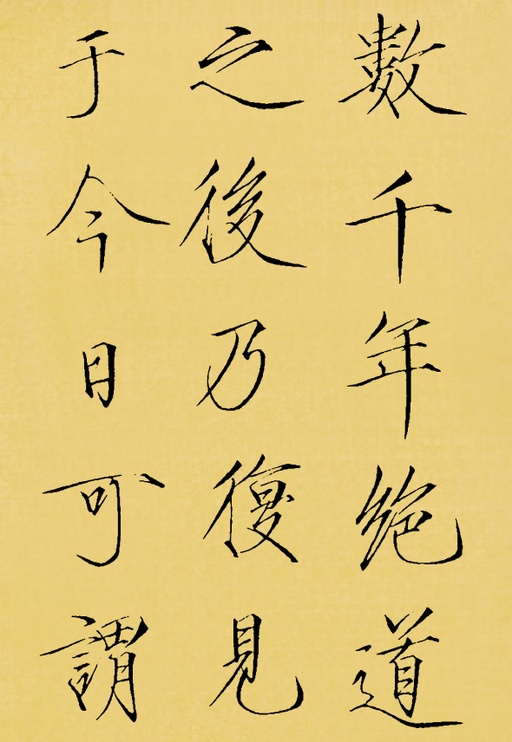 數千年絕道
之後乃復見
于今日可謂